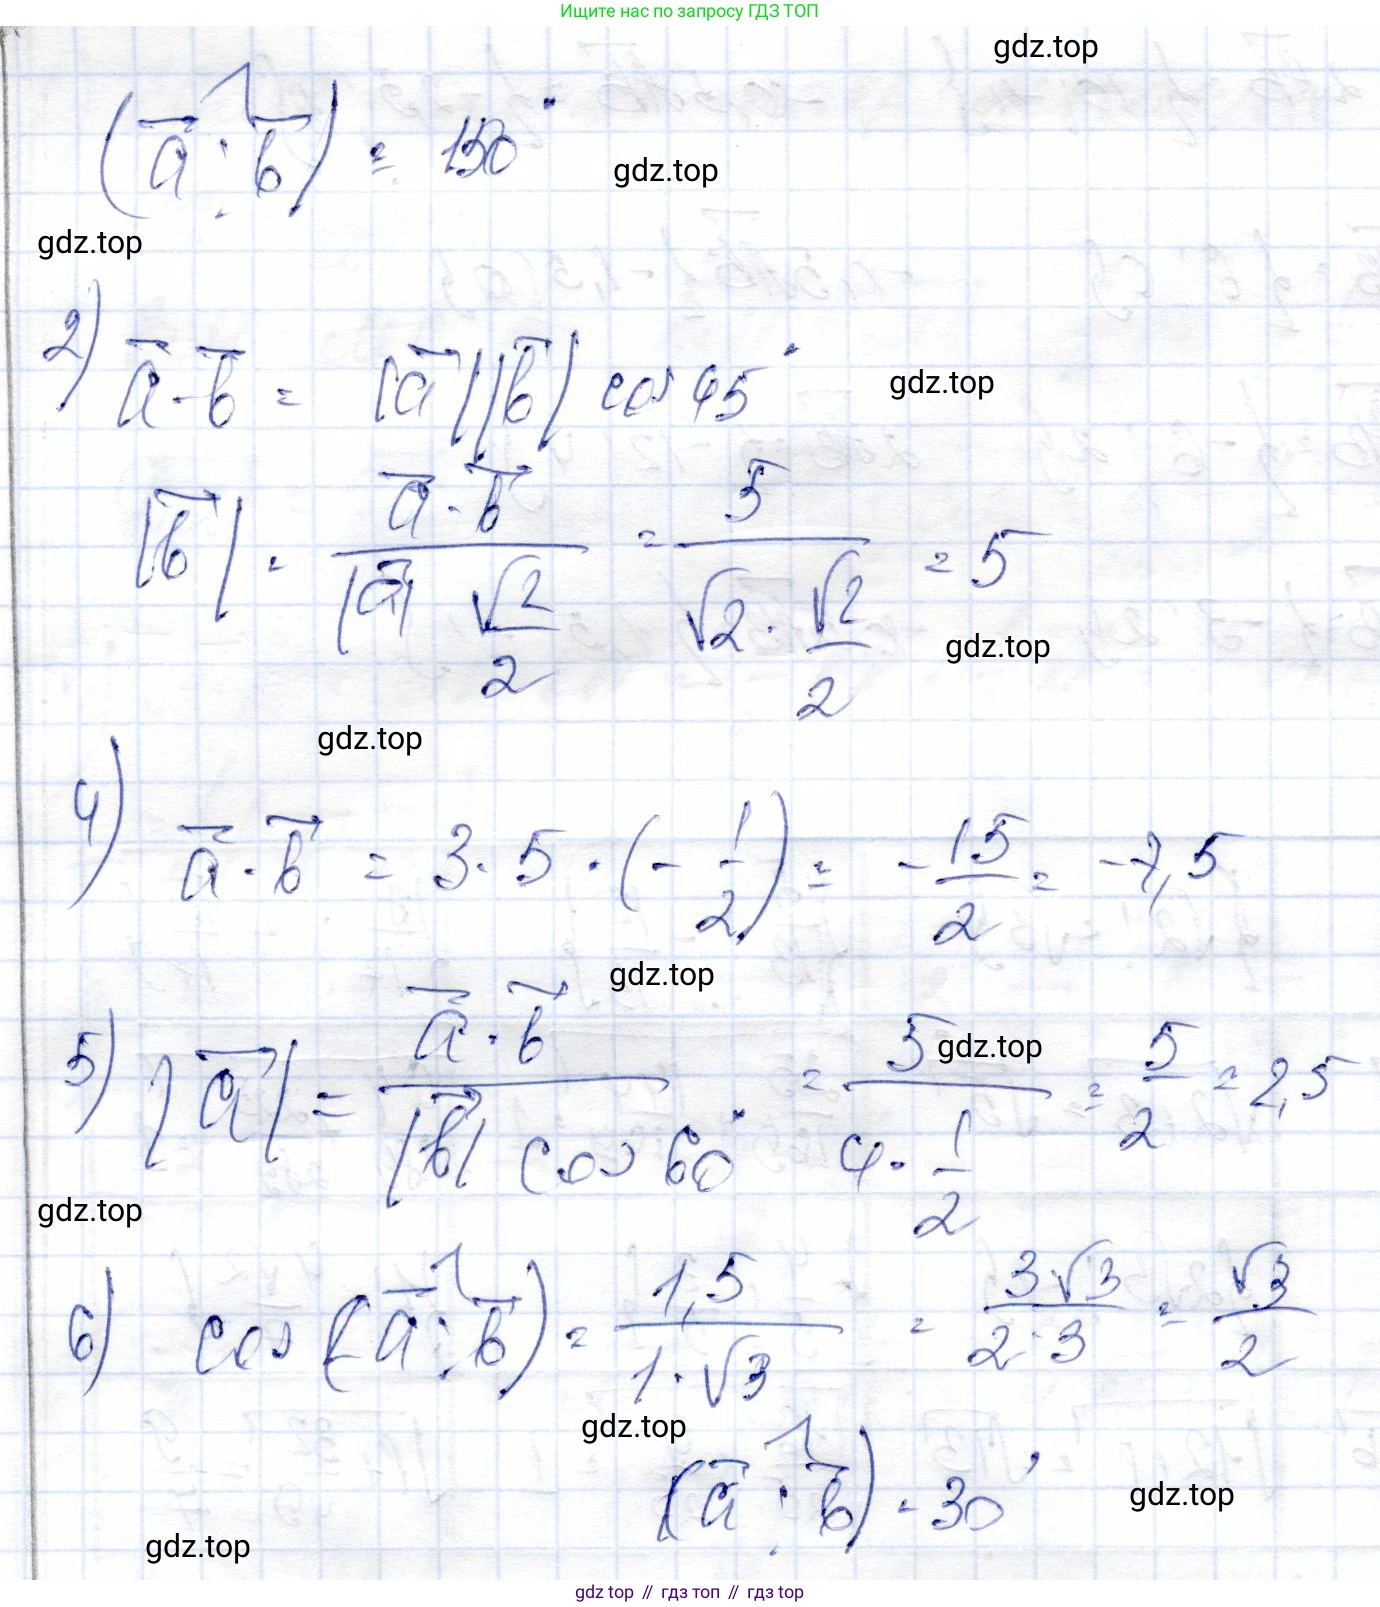 Ищите нас по запросу ГДЗ ТОП
gdz.top
(a⃗ ; b⃗) = 150°
gdz.top
gdz.top
2) a⃗ · b⃗ = |a⃗||b⃗| cos 45°
gdz.top
|b⃗| = (a⃗ · b⃗)/(|a⃗| √2/2) = 5/(√2 · √2/2) = 5
gdz.top
gdz.top
4) a⃗ · b⃗ = 3 · 5 · (- 1/2) = - 15/2 = -7,5
gdz.top
5) |a⃗| = (a⃗ · b⃗)/(|b⃗| cos 60°) = 5/(4 · 1/2) = 5/2 = 2,5
gdz.top
gdz.top
6) cos (a⃗ ; b⃗) = 1,5/(1 · √3) = 3√3/(2 · 3) = √3/2
gdz.top
(a⃗ ; b⃗) = 30°
gdz.top
gdz.top
gdz top // гдз топ // гдз top